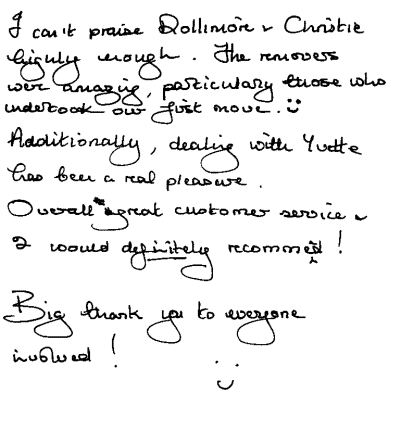 I can't praise Dollimore & Christie
highly enough. The removers
were amazing, particulary those who
undertook our first move. :)
Additionally, dealing with Yvette
has been a real pleasure.
Overall great customer service &
I would definitely recommend!
Big thank you to everyone
involved!
:)